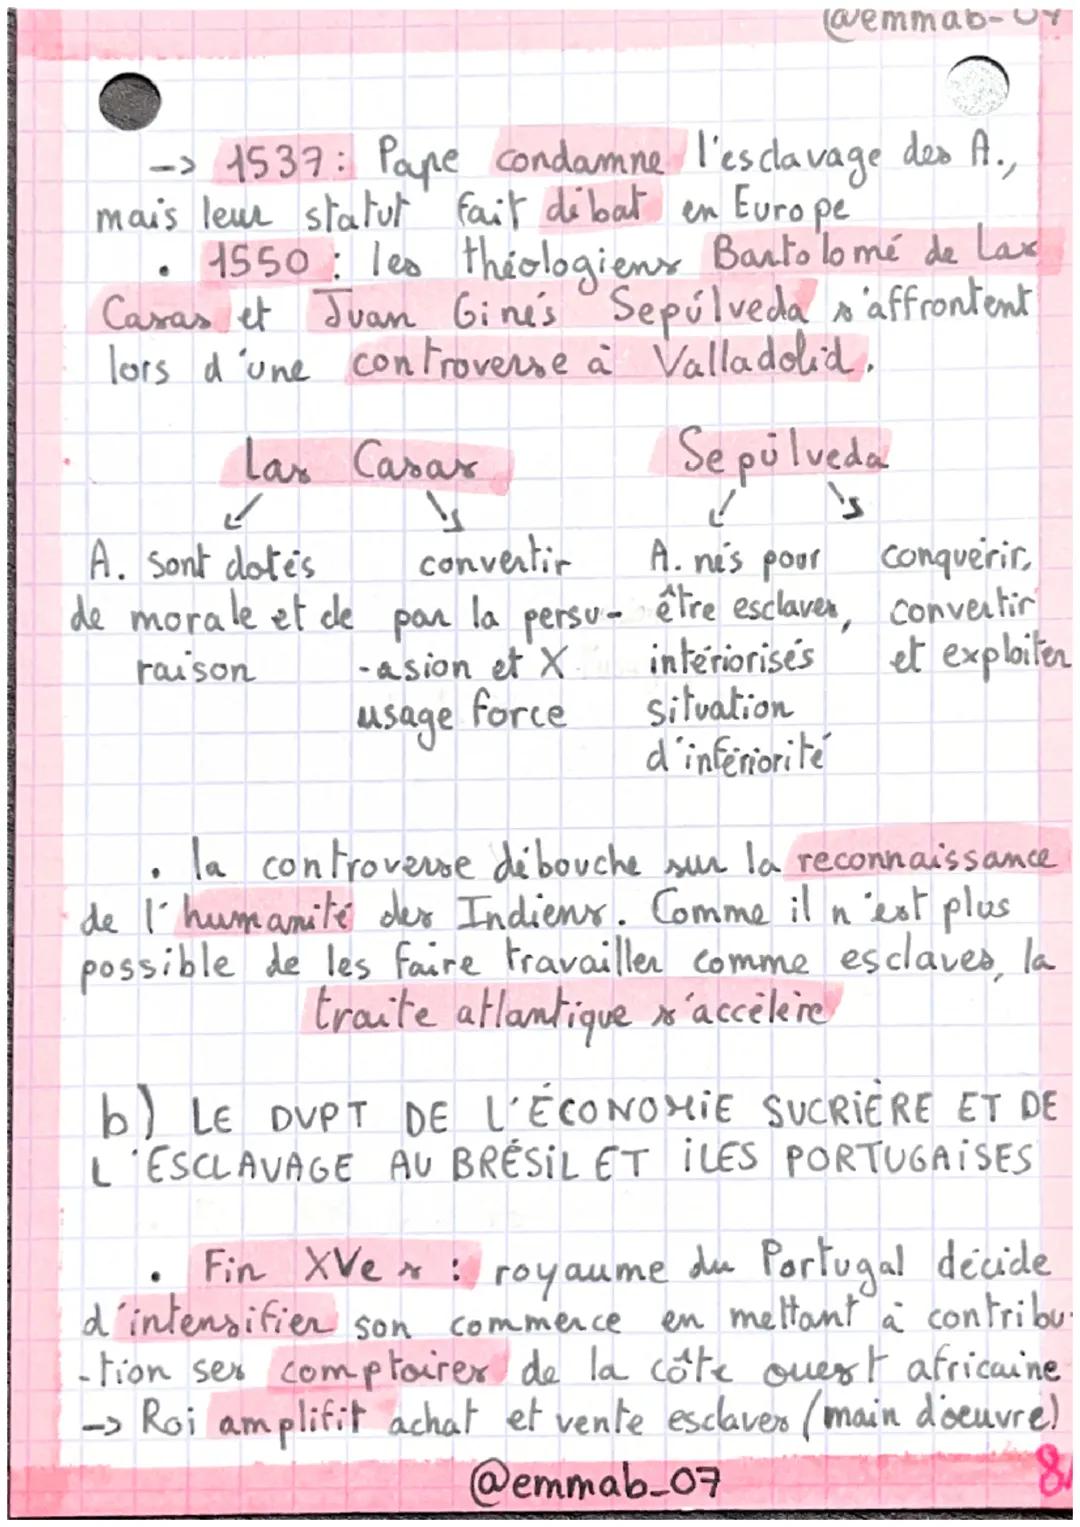 @emmab-07
-> 1537 : Pape condamne l'esclavage des A.,
mais leur statut fait débat en Europe
• 1550 : les théologiens Bartolomé de Las
Casas et Juan Ginés Sepúlveda s'affrontent
lors d'une controverse à Valladolid.
Las Casas
Sepúlveda
A. sont dotés
de morale et de
raison
convertir
par la persu-
-asion et X
usage force
A. nés pour
être esclaves,
intériorisés
situation
d'infériorité
conquérir,
convertir
et exploiter
• la controverse débouche sur la reconnaissance
de l'humanité des Indiens. Comme il n'est plus
possible de les faire travailler comme esclaves, la
traite atlantique s'accélère
b) LE DVPT DE L'ÉCONOMIE SUCRIÈRE ET DE
L'ESCLAVAGE AU BRÉSIL ET ILES PORTUGAISES
• Fin XVe s : royaume du Portugal décide
d'intensifier son commerce en mettant à contribu-
-tion ses comptoires de la côte ouest africaine
-> Roi amplifit achat et vente esclaves (main d'oeuvre)
@emmab_07
8